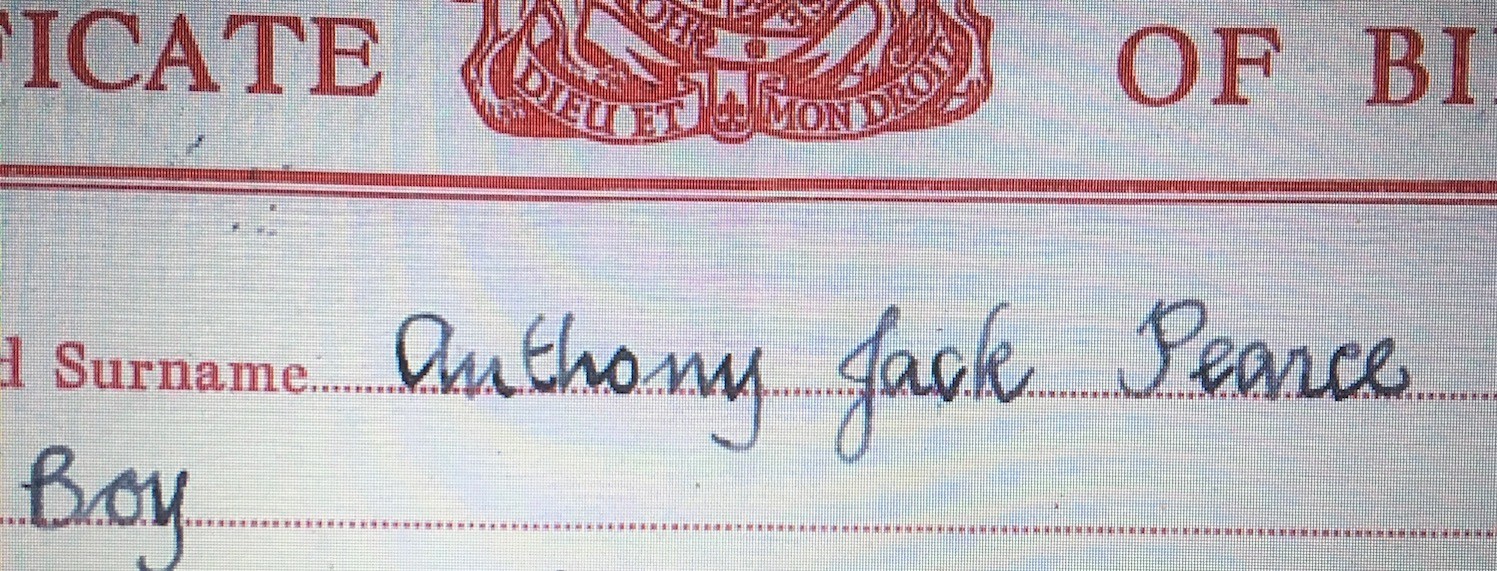 ICATE OF BI
DIEU ET MON DROIT
d Surname Anthony Jack Pearce
Boy